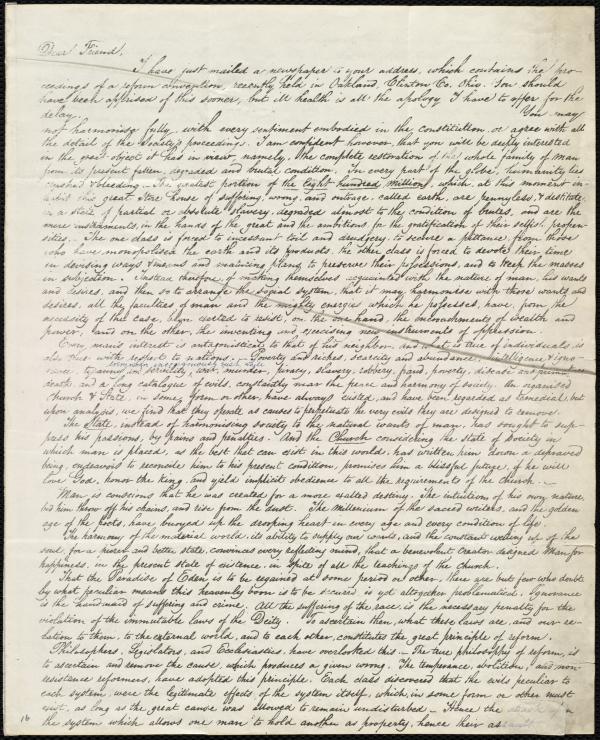 Dear Friend,
I have just mailed a newspaper to your address, which contains the pro-
ceedings of a reform convention, recently held in Oakland, Clinton Co, Ohio. You should
have been apprised of this sooner, but ill health is all the apology I have to offer for the
delay. You may
not harmonise fully, with every sentiment embodied in the constitution, or agree with all
the detail of the Society's proceedings. I am confident however, that you will be deeply interested
in the great object it has in view, namely, the complete restoration of the whole family of man
from its present fallen, degraded and brutal condition. In every part of the globe, humanity lies
crushed & bleeding. The greatest portion of the eight hundred million, which, at this moment in-
habit this great store house of suffering, wrong, and outrage, called earth, are pennyless, & destitute,
in a state of partial or absolute slavery, degraded almost to the condition of brutes, and are the
mere instruments, in the hands of the great and the ambitious for the gratification of their selfish propen-
sities. — The one class is forced to incessant toil and drudgery, to secure a pittance from those
who have monopolised the earth and its products, the other class is forced to devote their time
in devising ways & means and maturing plans to preserve their possessions, and to keep the masses
in subjection. Instead therefore, of making themselves acquainted with the nature of man, his wants
and desires, and then so to arrange the social system, that it may harmonise with those wants and
desires, all the faculties of man and the mighty energies which he possesses, have, from the
necessity of the case, been exerted to resist, on the one hand, the encroachments of wealth and
power, and on the other, the inventing and exercising new instruments of oppression.
Every man's interest is antagonistical to that of his neighbor, and what is true of individuals, is
also true with respect to nations. — Poverty and riches, scarcity and abundance, intelligence & igno-
rance, tyranny and servility, war, murder, piracy, slavery, robbery, fraid, poverty, disease and premature
death, and a long catalogue of evils, constantly mar the peace and harmony of society. An organised
Church & State, in some form or other, have always existed, and have been regarded as remedial, but
upon analysis, we find that they operate as causes to perpetuate the very evils they are designed to remove.
The State, instead of harmonising society to the natural wants of man, has sought to sup-
press his passions, by pains and penalties. And the Church considering the state of society in
which man is placed, as the best that can exist in this world, has written him down a depraved
being, endeavors to reconcile him to his present condition, promises him a blissful future, if he will
love God, honor the King, and yield implicit obedience to all the requirements of the Church. —
Man is conscious that he was created for a more exalted destiny. The intuition of his own nature,
bid him throw off his chains, and rise from the dust. The Millenium of the sacred writers, and the golden
age of the poets, have buoyed up the drooping heart in every age and every condition of life.
The harmony of the material world, its ability to supply our wants, and the constant welling up of the
soul, for a purer and better state, convinces every reflecting mind, that a benevolent Creator designed Man for
happiness, in the present state of existence, in spite of all the teachings of the Church.
That the Paradise of Eden is to be regained at some period or other, there are but few who doubt
by what peculiar means this heavenly boon is to be secured, is yet altogether problematical. Ignorance
is the handmaid of suffering and crime. All the suffering of the race, is the necessary penalty for the
violation of the immutable laws of the Deity. To ascertain then, what these laws are, and our re-
lation to them, to the external world, and to each other, constitutes the great principle of reform.
Philosophers, Legislators, and Ecclesiastics, have overlooked this — The true philosophy of reform, is
to ascertain and remove the cause, which produces a given wrong. The temperance, abolition, and non-
resistance reformers, have adopted this principle. Each class discovered that the evils peculiar to
each system, were the legitimate effects of the system itself, which, in some form or other must
exist, as long as the great cause was allowed to remain undisturbed — Hence the
the system which allows one man to hold another as property, hence their
16